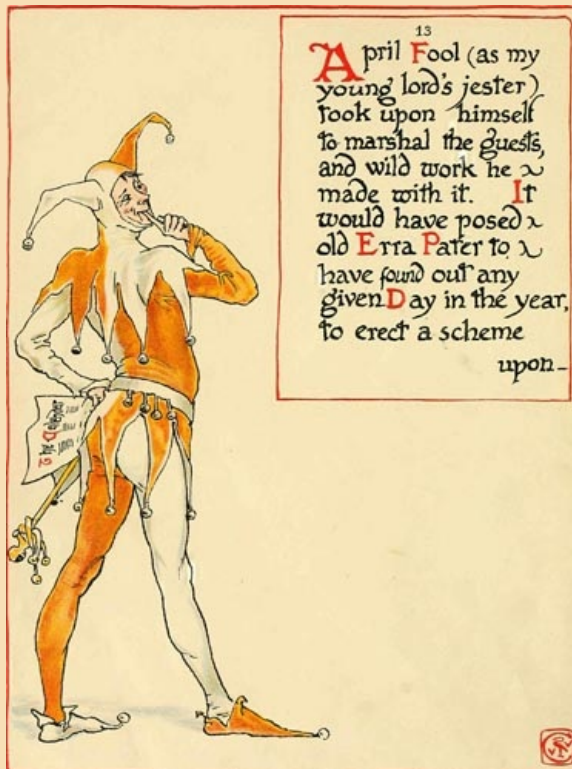 13
April Fool (as my
young lord's jester)
took upon himself
to marshal the guests,
and wild work he
made with it. It
would have posed
old Erra Pater to
have found out any
given Day in the year,
to erect a scheme
upon-